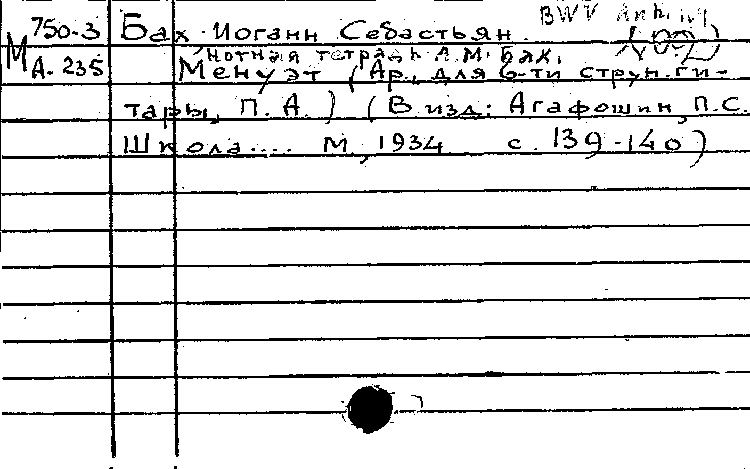 BWV Anh.
750-3 Бах Иоганн Себастьян
М
Нотная тетрадь А.М. Бах.
А-235 Менуэт (Ар. для 6-ти струн. ги-
тары, П. А.) (В изд: Агафошин, П.С.
Школа.... М, 1934 с. 139-140)